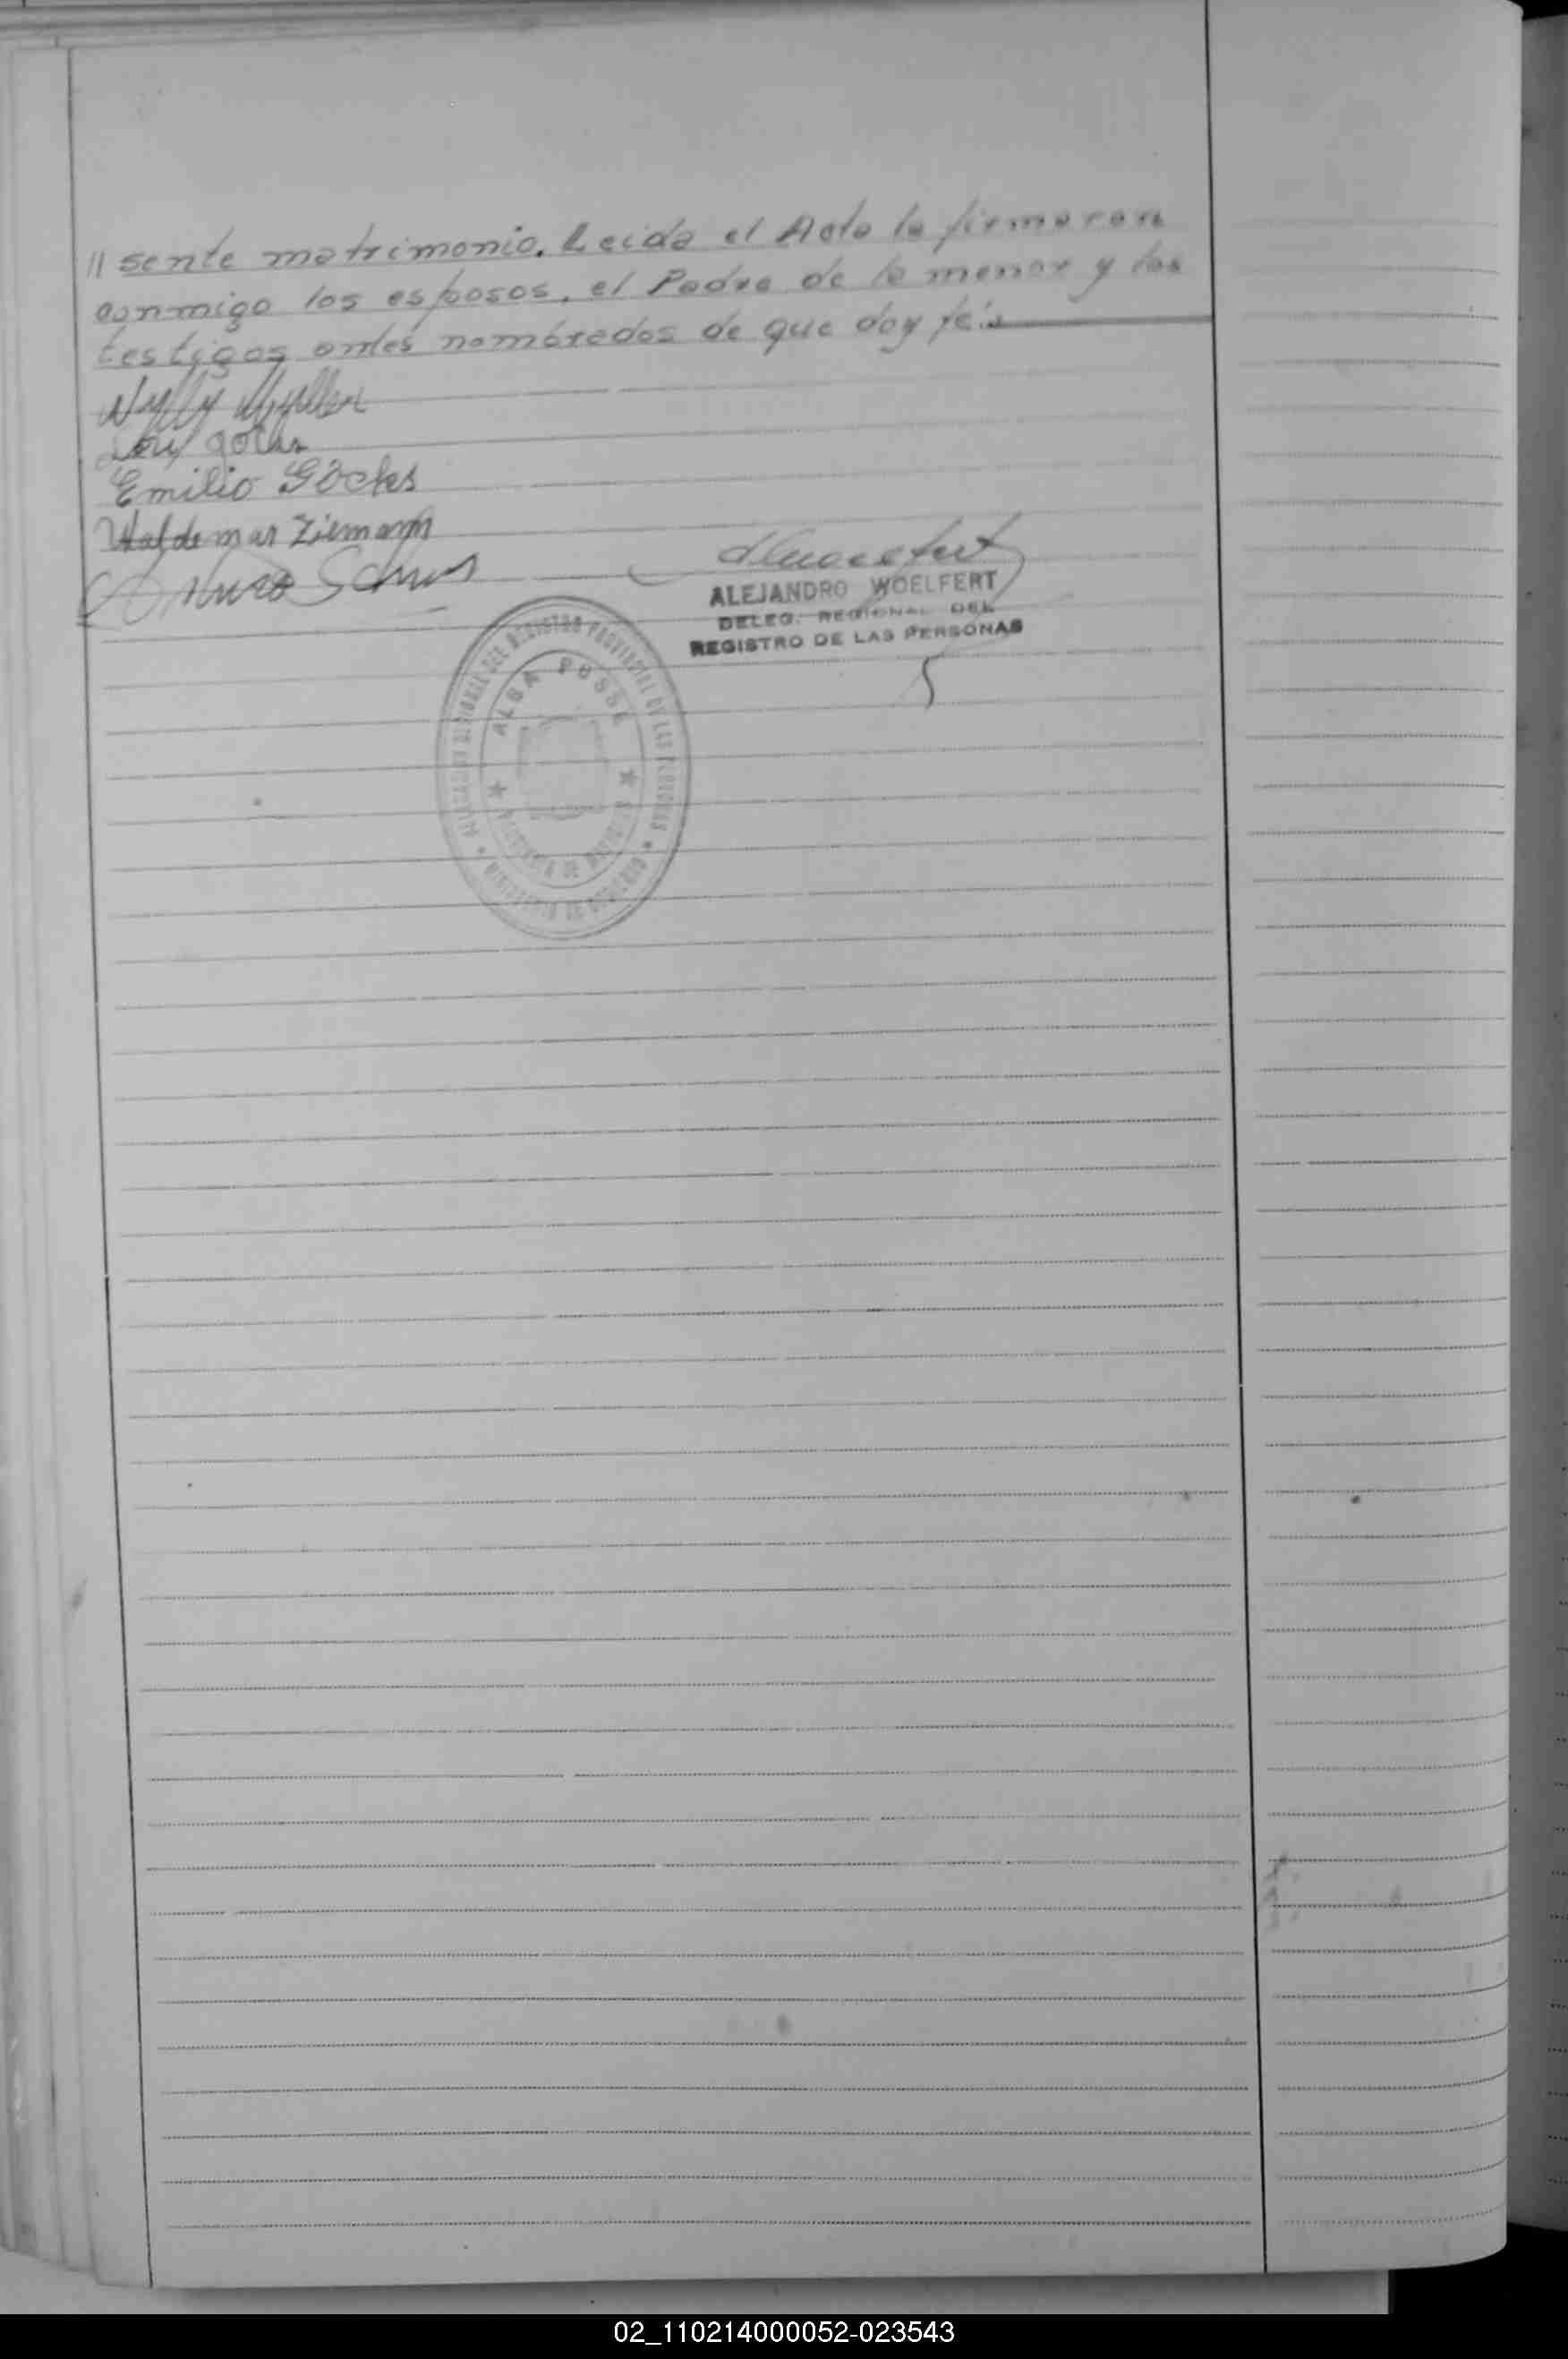 // sente matrimonio. Leida el Acta la firmaron
conmigo los esposos, el Padre de la menor y los
testigos antes nombrados de que doy fe.
Emilio Göckes
Waldemar Ziemann
Arturo
ALEJANDRO WOELFERT
DELEG. REGIONAL DEL
REGISTRO DE LAS PERSONAS
DEL REGISTRO PROVINCIAL DE LAS PERSONAS
ALBA POSSE
PROVINCIA DE MISIONES
MINISTERIO DE GOBIERNO
02_110214000052-023543